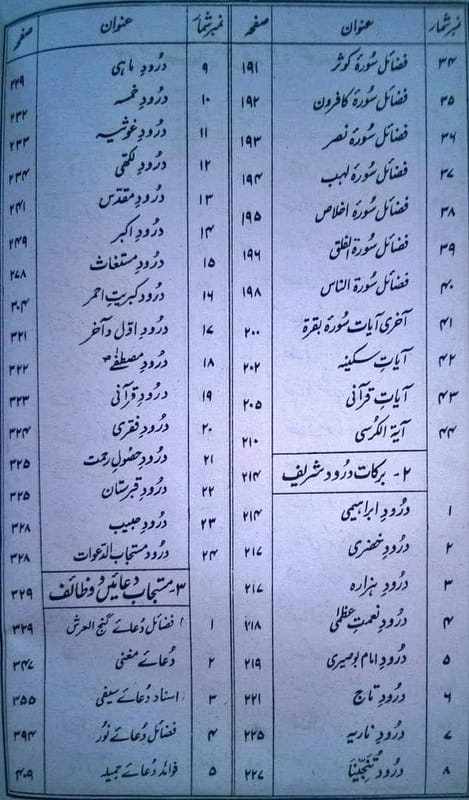 نمبر شمار عنوان صفحہ
۳۴ فضائل سورۂ کوثر ۱۹۱
۳۵ فضائل سورۂ کافرون ۱۹۲
۳۶ فضائل سورۂ نصر ۱۹۳
۳۷ فضائل سورۂ لہب ۱۹۴
۳۸ فضائل سورۂ اخلاص ۱۹۵
۳۹ فضائل سورۃ الفلق ۱۹۶
۴۰ فضائل سورۃ الناس ۱۹۸
۴۱ آخری آیات سورۂ بقرۃ ۲۰۰
۴۲ آیاتِ سکینہ ۲۰۲
۴۳ آیاتِ قرآنی ۲۰۵
۴۴ آیۃ الکرسی ۲۱۰
۲- برکات درود شریف ۲۱۴
۱ درودِ ابراہیمی ۲۱۴
۲ درودِ خضری ۲۱۷
۳ درودِ ہزارہ ۲۱۷
۴ درودِ نعمتِ عظمٰی ۲۱۸
۵ درودِ امام بوصیری ۲۱۹
۶ درودِ تاج ۲۲۱
۷ درودِ ناریہ ۲۲۵
۸ درودِ تُنَجِّیْنَا ۲۲۷
نمبر شمار عنوان صفحہ
۹ درودِ ماہی ۲۲۹
۱۰ درودِ خمسہ ۲۳۲
۱۱ درودِ غوثیہ ۲۳۳
۱۲ درودِ لکھی ۲۳۴
۱۳ درودِ مقدس ۲۴۱
۱۴ درودِ اکبر ۲۴۹
۱۵ درودِ مستغاث ۲۷۸
۱۶ درود کبریتِ احمر ۳۰۴
۱۷ درودِ اوّل و آخر ۳۲۱
۱۸ درودِ مصطفٰے ؐ ۳۲۲
۱۹ درودِ قرآنی ۳۲۳
۲۰ درودِ فقری ۳۲۴
۲۱ درودِ حصولِ رحمت ۳۲۵
۲۲ درودِ قبرستان ۳۲۵
۲۳ درودِ حبیب ۳۲۸
۲۴ درود مستجاب الدعوات ۳۲۸
۳- مستجاب دعائیں و وظائف ۳۲۹
۱ فضائل دُعائے گنج العرش ۳۲۹
۲ دُعائے مغنی ۳۴۷
۳ اسناد دُعائے سیفی ۳۵۵
۴ فضائل دُعائے نُور ۳۹۴
۵ فوائد دُعائے جمیلہ ۴۰۹